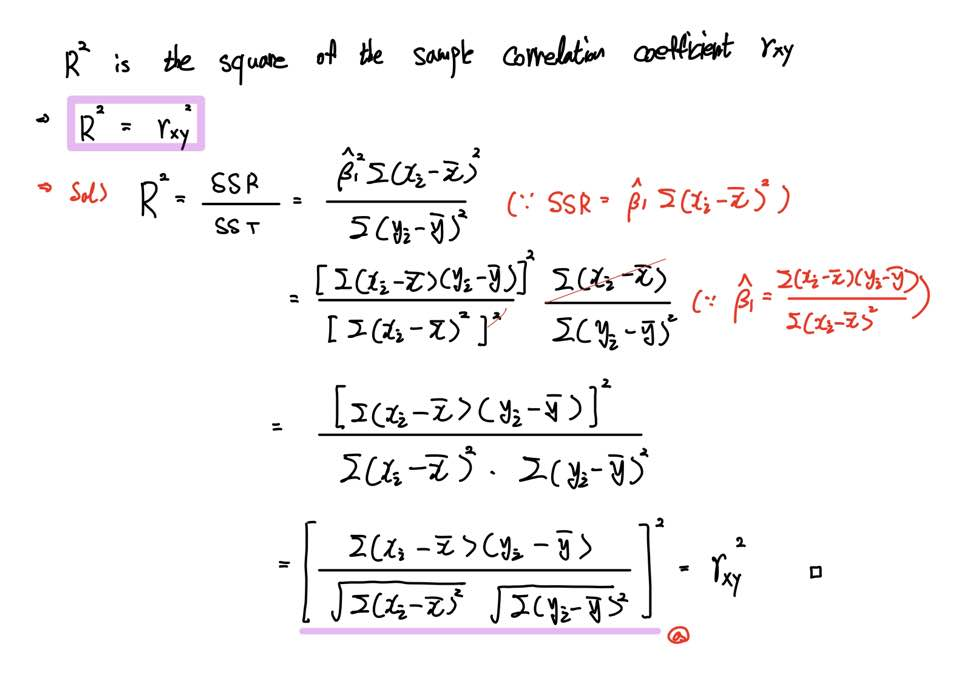 R² is the square of the sample correlation coefficient r_xy
⇒ R² = r_xy²
⇒ Sol) R² = SSR / SST = β̂₁² Σ(xᵢ - x̄)² / Σ(yᵢ - ȳ)² (∵ SSR = β̂₁ Σ(xᵢ - x̄)²)
= [Σ(xᵢ - x̄)(yᵢ - ȳ)]² / [Σ(xᵢ - x̄)²]² Σ(xᵢ - x̄) / Σ(yᵢ - ȳ)² (∵ β̂₁ = Σ(xᵢ - x̄)(yᵢ - ȳ) / Σ(xᵢ - x̄)²)
= [Σ(xᵢ - x̄)(yᵢ - ȳ)]² / Σ(xᵢ - x̄)² · Σ(yᵢ - ȳ)²
= [Σ(xᵢ - x̄)(yᵢ - ȳ) / √Σ(xᵢ - x̄)² √Σ(yᵢ - ȳ)²]² = r_xy² □
ⓐ